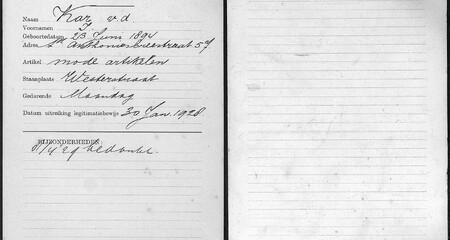 Naam Kar v.d.
Voornamen J.
Geboortedatum 23 Juni 1894
Adres, St Anthoniebreestraat 57
Artikel mode artikelen
Staanplaats Westerstraat
Gedurende Maandag
Datum uitreiking legitimatiebewijs 30 Jan. 1928
BIJZONDERHEDEN:
bedankt